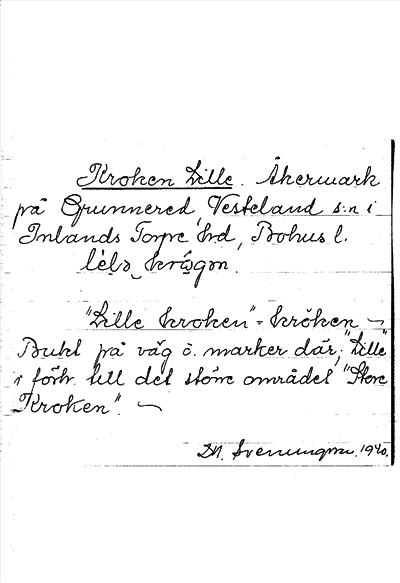 Kroken Lille. Åkermark
på Grunnered, Vesteland s:n i
Inlands Torpe hd, Bohus l.
lèlə krǫ́gən.
"Lille kroken" = kröken –
Bukt på väg o. marker där, "Lille"
i förh. till det större området "Store
Kroken". –
Svenungsson. 1940.